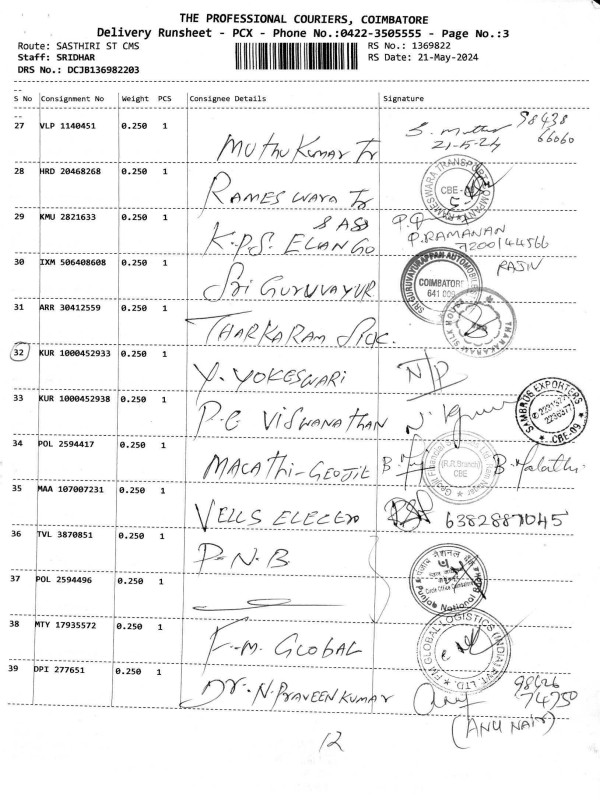 THE PROFESSIONAL COURIERS, COIMBATORE
Delivery Runsheet - PCX - Phone No.:0422-3505555 - Page No.:3
Route: SASTHIRI ST CMS RS No.: 1369822
Staff: SRIDHAR RS Date: 21-May-2024
DRS No.: DCJB136982203
S No Consignment No Weight PCS Consignee Details Signature
27 VLP 1140451 0.250 1 MUTHU KUMAR Tr S. Muthu 98438
21-5-24 66060
28 HRD 20468268 0.250 1 RAMESWARA Tr RAMESWARA TRANSPORT COMPANY CBE-
29 KMU 2821633 0.250 1 K.P.S. ELANGO P.RAMANAN
7200144566
30 IXM 506408608 0.250 1 Sri GURUVAYUR SRI GURUVAYURAPPAN AUTOMOBILES COIMBATORE 641 009 RAJIV
31 ARR 30412559 0.250 1 THARKARAM SILK. THARAKARAM SILK HOUSE
32 KUR 1000452933 0.250 1 Y. YOKESWARI N/D
33 KUR 1000452938 0.250 1 P.C VISWANATHAN SAMBROS EXPORTERS CBE-09
34 POL 2594417 0.250 1 MALATHI-GEOJIT (R.R.Branch) CBE B. Malathi
35 MAA 107007231 0.250 1 VELLS ELECTRO 6382887045
36 TVL 3870851 0.250 1 P.N.B
37 POL 2594496 0.250 1 Punjab National Bank
38 MTY 17935572 0.250 1 F.M. GLOBAL FM GLOBAL LOGISTICS (INDIA) PVT. LTD.
39 DPI 277651 0.250 1 Dr. N. PRAVEEN KUMAR 98626
74750
(ANU NAIR)
12